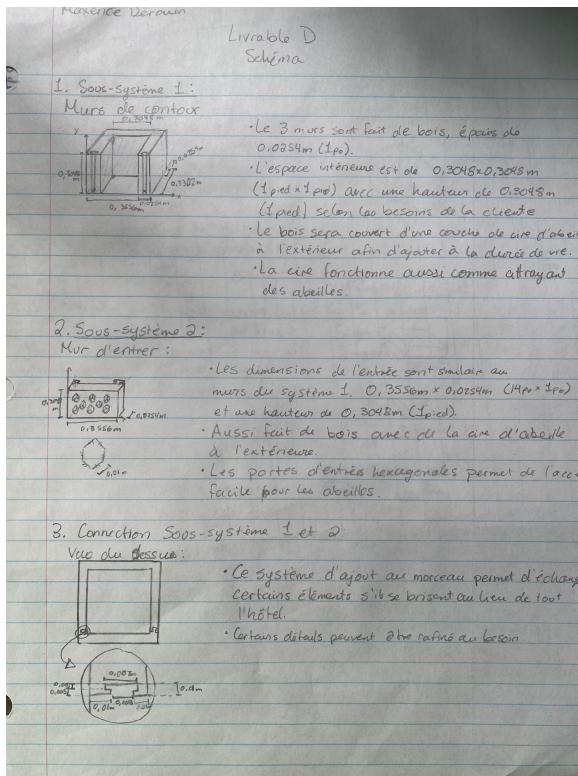 Maxence Derouin
Livrable D
Schéma
1. Sous-système 1:
Murs de contour
0,3048m
y
0,3048
m
0,0254m
0,3302m
x
0,0254m
0,3556m
• Le 3 murs sont fait de bois, épais de
0,0254m (1po).
• L'espace intérieure est de 0,3048x0,3048m
(1pied x 1pied) avec une hauteur de 0,3048m
(1pied) selon les besoins de la cliente
• Le bois sera couvert d'une couche de cire d'abeil
à l'extérieur afin d'ajouter à la durée de vie.
• La cire fonctionne aussi comme attrayant
des abeilles.
2. Sous-système 2:
Mur d'entrer:
m
0,0254m
0,3556m
0,01m
• Les dimensions de l'entrée sont similaire au
murs du système 1. 0,3556m x 0,0254m (14po x 1po)
et une hauteur de 0,3048m (1pied).
• Aussi fait de bois avec de la cire d'abeille
à l'extérieure.
• Les portes d'entrées hexagonales permet de l'acc
facile pour les abeilles.
3. Connection Sous-système 1 et 2:
Vue du dessue:
• Ce système d'ajout au morceau permet d'échang
certains éléments s'ils se brisent au lieu de tout
l'hôtel.
• Certains détails peuvent être rafiné au besoin
0,01m
0,01m